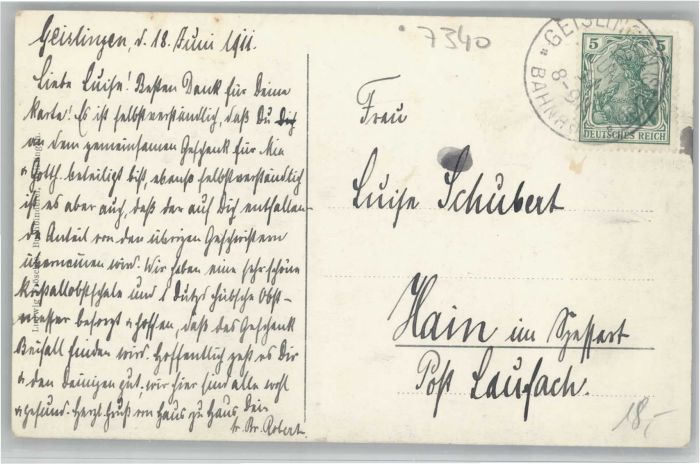 Geislingen, d. 18. Juni 1911.
Liebe Luise! Besten Dank für Deine
Karte! Es ist selbstverständlich, daß Du Dich
an dem gemeinsamen Geschenk für Mia
u. Gotth. beteiligst bist, ebenso selbstverständlich
ist es aber auch, daß der auf Dich entfallen-
de Anteil von den übrigen Geschwistern
übernommen wird. Wir haben eine sehr schöne
Kristallobstschale und 1 Dutzd hübsche Obst-
messer besorgt u. hoffen, daß das Geschenk
Beifall finden wird. Hoffentlich geht es Dir
u. den Deinigen gut, wir hier sind alle wohl
u. gesund. Herzl. Gruß von Haus zu Haus, Dein
tr. Br. Robert.
7340
GEISLINGEN
BAHNH
8-9
5 5
DEUTSCHES REICH
Frau
Luise Schubert
Hain im Spessart
Post Laufach.
18,-